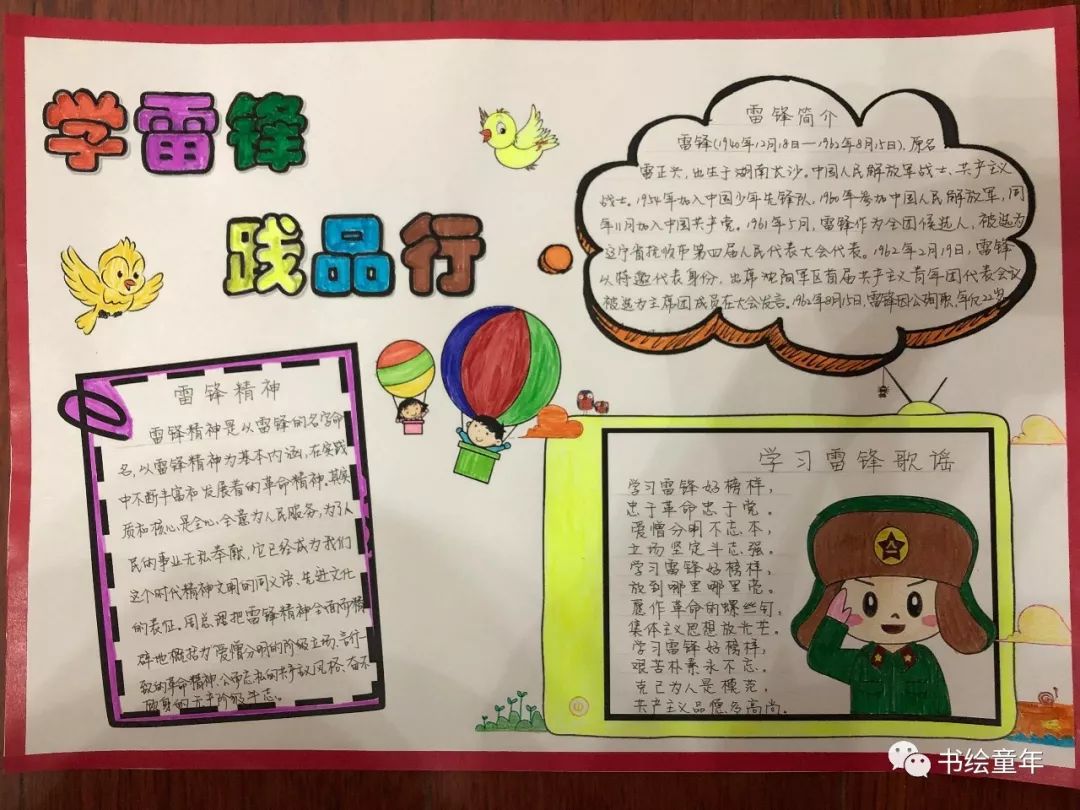 学雷锋
践品行
雷锋简介
雷锋(1940年12月18日—1962年8月15日),原名
雷正兴,出生于湖南长沙。中国人民解放军战士、共产主义
战士。1954年加入中国少年先锋队,1960年参加中国人民解放军,同
年11月加入中国共产党。1961年5月,雷锋作为全团候选人,被选为
辽宁省抚顺市第四届人民代表大会代表。1962年2月19日,雷锋
以特邀代表身份,出席沈阳军区首届共产主义青年团代表会议
被选为主席团成员在大会发言。1962年8月15日,雷锋因公殉职,年仅22岁
雷锋精神
雷锋精神是以雷锋的名字命
名,以雷锋精神为基本内涵,在实践
中不断丰富和发展着的革命精神。其实
质和核心是全心全意为人民服务,为了人
民的事业无私奉献,它已经成为我们
这个时代精神文明的同义语、先进文化
的表征。周总理把雷锋精神全面而精
辟地概括为"爱憎分明的阶级立场、言行一
致的革命精神、公而忘私的共产主义风格、奋不
顾身的无产阶级斗志。
学习雷锋歌谣
学习雷锋好榜样,
忠于革命忠于党。
爱憎分明不忘本,
立场坚定斗志强。
学习雷锋好榜样,
放到哪里哪里亮。
愿作革命的螺丝钉,
集体主义思想放光芒。
学习雷锋好榜样,
艰苦朴素永不忘。
克己为人是模范,
共产主义品德多高尚。
八一
书绘童年